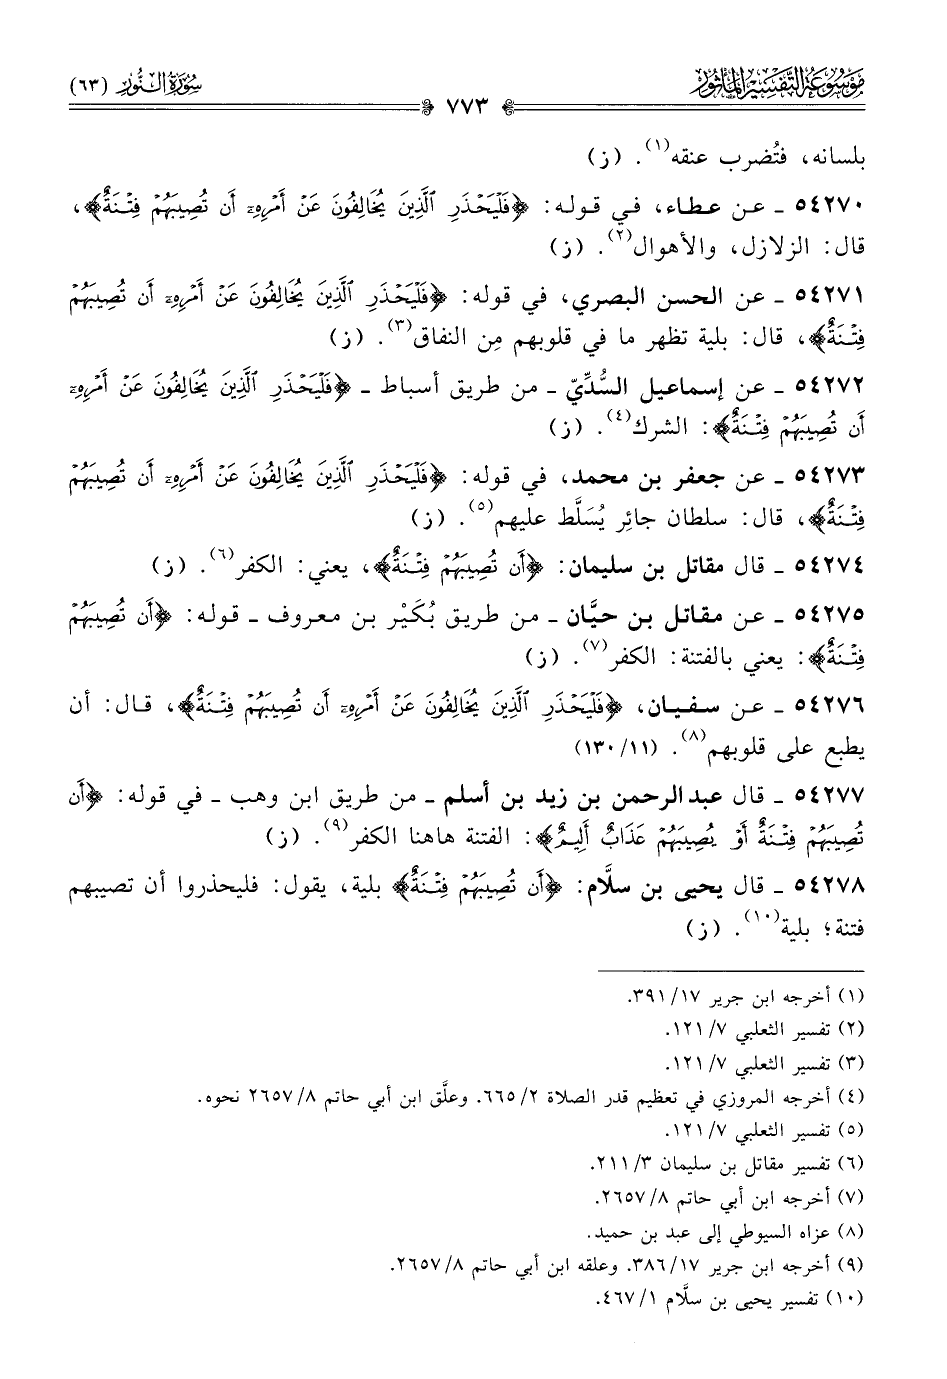 مَوْسُوعَةُ التَّفْسِيرِ المَأْثُورِ
سُورَةُ النُّورِ (٦٣)
٧٧٣
بلسانه، فتُضرب عنقه(١). (ز)
٥٤٢٧٠ ـ عن عطاء، في قوله: ﴿فَلْيَحْذَرِ ٱلَّذِينَ يُخَالِفُونَ عَنْ أَمْرِهِۦٓ أَن تُصِيبَهُمْ فِتْنَةٌ﴾،
قال: الزلازل، والأهوال(٢). (ز)
٥٤٢٧١ ـ عن الحسن البصري، في قوله: ﴿فَلْيَحْذَرِ ٱلَّذِينَ يُخَالِفُونَ عَنْ أَمْرِهِۦٓ أَن تُصِيبَهُمْ
فِتْنَةٌ﴾، قال: بلية تظهر ما في قلوبهم مِن النفاق(٣). (ز)
٥٤٢٧٢ ـ عن إسماعيل السُّدِّيّ ـ من طريق أسباط ـ ﴿فَلْيَحْذَرِ ٱلَّذِينَ يُخَالِفُونَ عَنْ أَمْرِهِۦٓ
أَن تُصِيبَهُمْ فِتْنَةٌ﴾: الشرك(٤). (ز)
٥٤٢٧٣ ـ عن جعفر بن محمد، في قوله: ﴿فَلْيَحْذَرِ ٱلَّذِينَ يُخَالِفُونَ عَنْ أَمْرِهِۦٓ أَن تُصِيبَهُمْ
فِتْنَةٌ﴾، قال: سلطان جائِر يُسَلَّط عليهم(٥). (ز)
٥٤٢٧٤ ـ قال مقاتل بن سليمان: ﴿أَن تُصِيبَهُمْ فِتْنَةٌ﴾، يعني: الكفر(٦). (ز)
٥٤٢٧٥ ـ عن مقاتل بن حيَّان ـ من طريق بُكَيْر بن معروف ـ قوله: ﴿أَن تُصِيبَهُمْ
فِتْنَةٌ﴾: يعني بالفتنة: الكفر(٧). (ز)
٥٤٢٧٦ ـ عن سفيان، ﴿فَلْيَحْذَرِ ٱلَّذِينَ يُخَالِفُونَ عَنْ أَمْرِهِۦٓ أَن تُصِيبَهُمْ فِتْنَةٌ﴾، قال: أن
يطبع على قلوبهم(٨). (١١/ ١٣٠)
٥٤٢٧٧ ـ قال عبد الرحمن بن زيد بن أسلم ـ من طريق ابن وهب ـ في قوله: ﴿أَن
تُصِيبَهُمْ فِتْنَةٌ أَوْ يُصِيبَهُمْ عَذَابٌ أَلِيمٌ﴾: الفتنة هاهنا الكفر(٩). (ز)
٥٤٢٧٨ ـ قال يحيى بن سلَّام: ﴿أَن تُصِيبَهُمْ فِتْنَةٌ﴾ بلية، يقول: فليحذروا أن تصيبهم
فتنة؛ بلية(١٠). (ز)
(١) أخرجه ابن جرير ١٧/ ٣٩١.
(٢) تفسير الثعلبي ٧/ ١٢١.
(٣) تفسير الثعلبي ٧/ ١٢١.
(٤) أخرجه المروزي في تعظيم قدر الصلاة ٢/ ٦٦٥. وعلَّق ابن أبي حاتم ٨/ ٢٦٥٧ نحوه.
(٥) تفسير الثعلبي ٧/ ١٢١.
(٦) تفسير مقاتل بن سليمان ٣/ ٢١١.
(٧) أخرجه ابن أبي حاتم ٨/ ٢٦٥٧.
(٨) عزاه السيوطي إلى عبد بن حميد.
(٩) أخرجه ابن جرير ١٧/ ٣٨٦. وعلقه ابن أبي حاتم ٨/ ٢٦٥٧.
(١٠) تفسير يحيى بن سلَّام ١/ ٤٦٧.